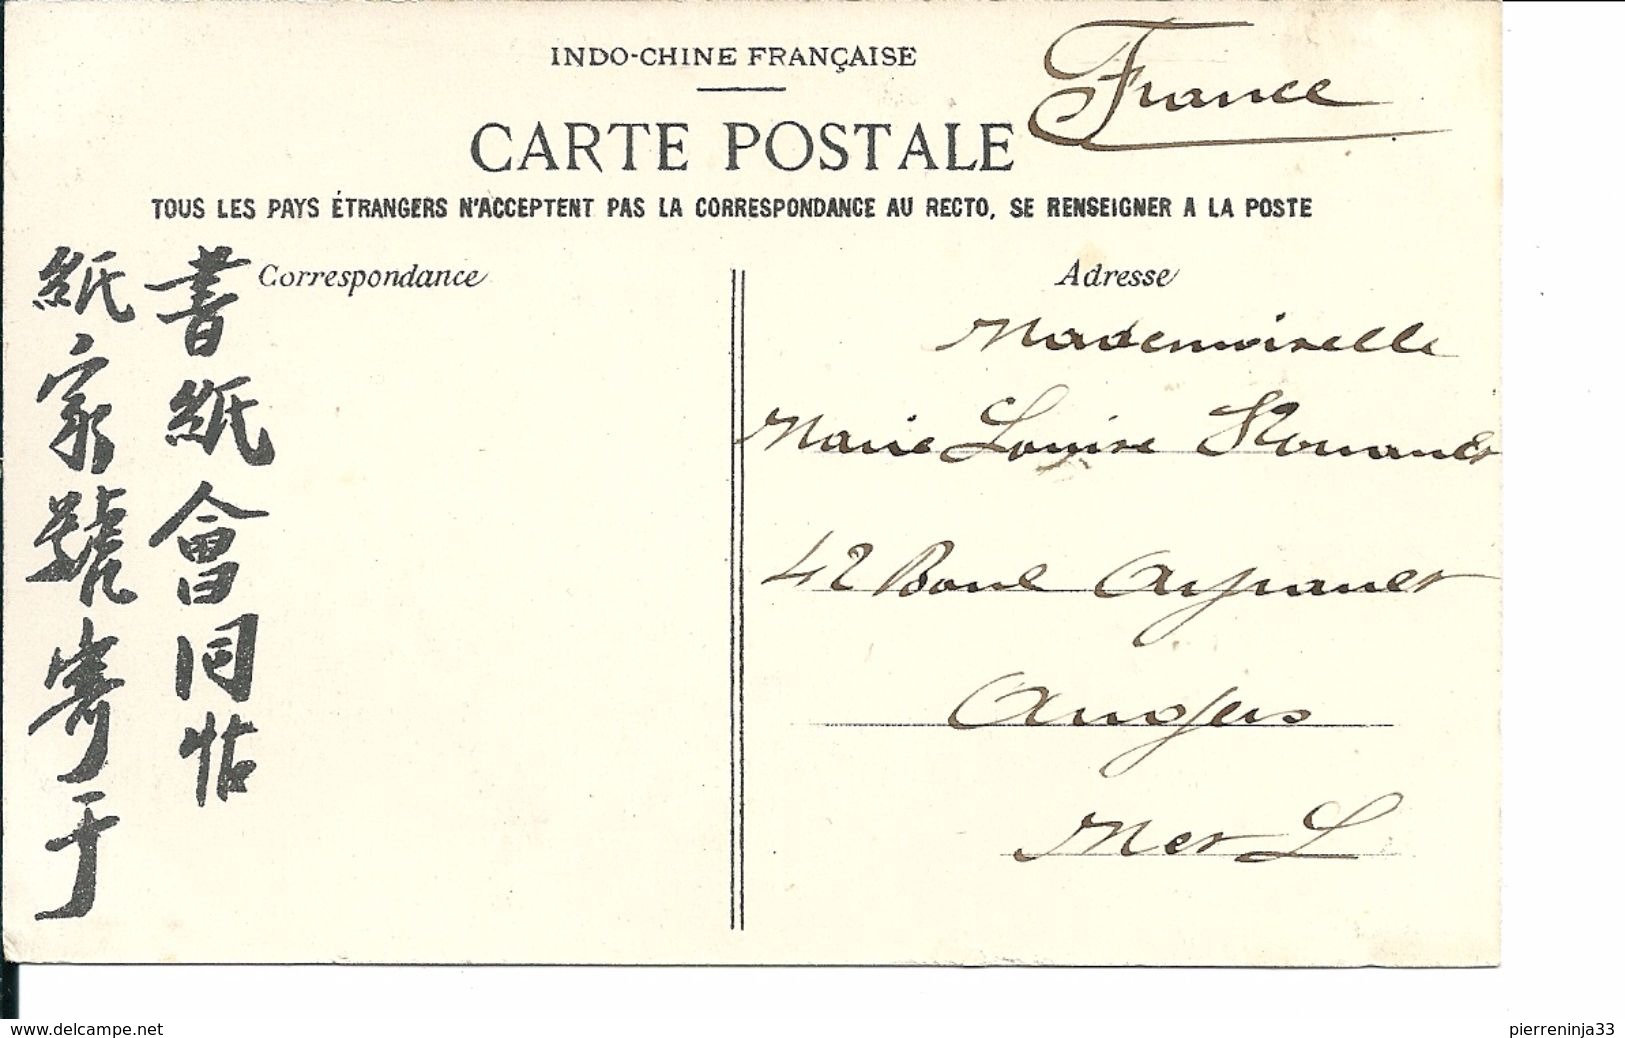 INDO-CHINE FRANÇAISE
France
CARTE POSTALE
TOUS LES PAYS ÉTRANGERS N'ACCEPTENT PAS LA CORRESPONDANCE AU RECTO, SE RENSEIGNER A LA POSTE
書紙會同帖
紙家號寄于
Correspondance
Adresse
Mademoiselle
Marie Louise
42 Boul Ayrault
Angers
M et L
www.delcampe.net
pierreninja33